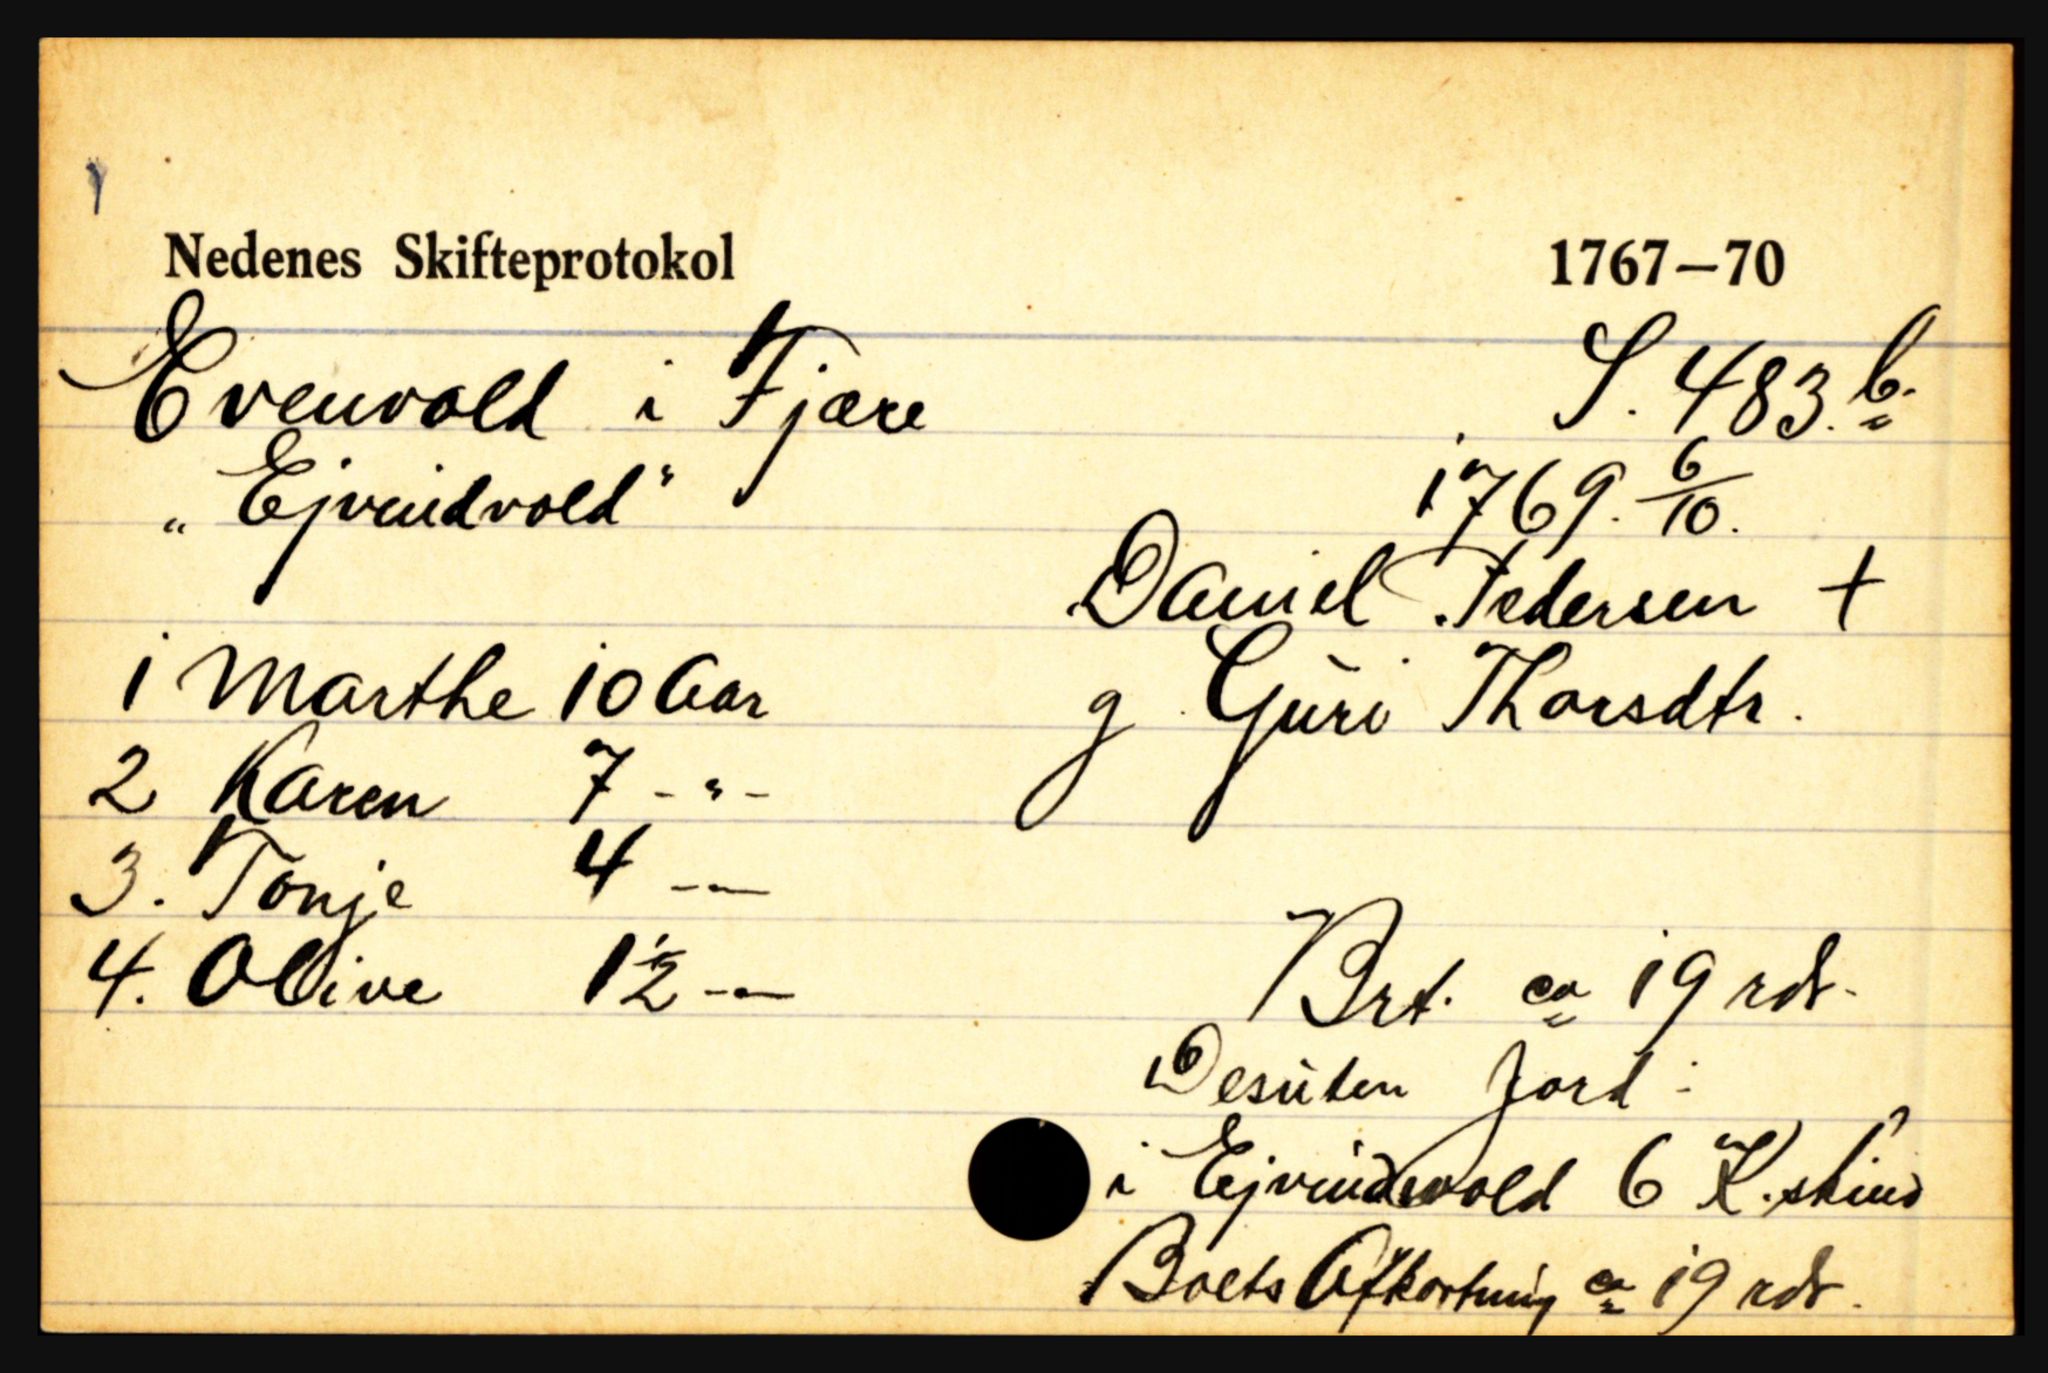 Nedenes Skifteprotokol 1767—70
Evenvold i Fjære S. 483. b.
"Ejvindvold" 1769. 6/10.
Daniel Pedersen +
1 Marthe 10 Aar g Guri Thorsdtr.
2 Karen 7 - " -
3. Tonje 4 - -
4. Olive 1½ - - Brt. ca 19 rdr.
Desuten Jord :
i Ejvindvold 6 K. skind
Boets Afkortning ca 19 rdr.